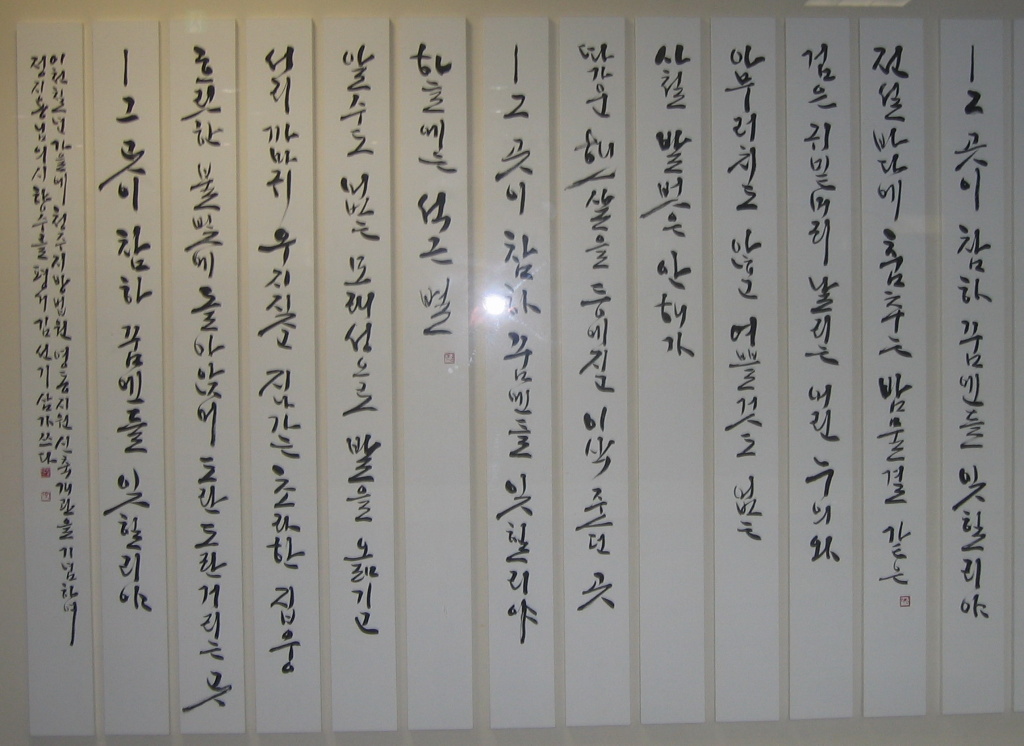 ㅡ그 곳이 참하 꿈엔들 잇힐리야
전설바다에 춤추는 밤물결 같은
검은 귀밑머리 날리는 어린 누의와
아무러치도 않고 여쁠것도 없는
사철 발벗은 안해가
따가운 해ㅅ살을 등에지고 이삭 줏던 곳
ㅡ그 곳이 참하 꿈엔들 잇힐리야
하늘에는 석근 별
알수도 없는 모래성으로 발을 옮기고
서리 까마귀 우지짖고 지나가는 초라한 집웅
흐릿한 불빛에 돌아앉어 도란도란거리는 곳
ㅡ그 곳이 참하 꿈엔들 잇힐리야
이천일년 가을에 청주지방법원 영동지원 신축개관을 기념하며
정지용님의 시 향수를 평거 김선기 삼가 쓰다